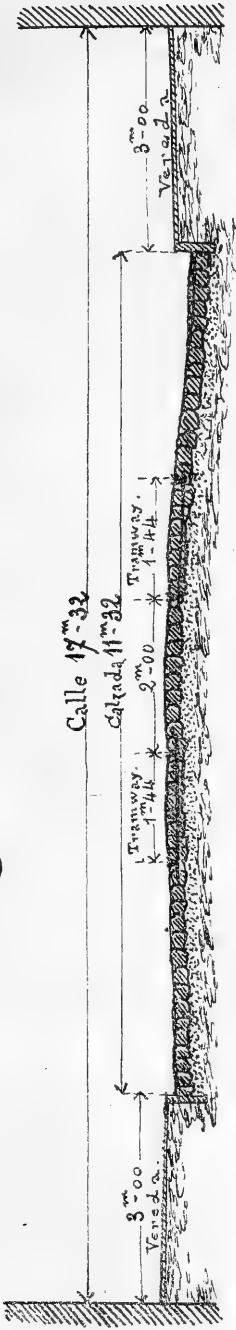 Calle 17ᵐ-32
Calzada 11ᵐ-32
3ᵐ-00
Vereda.
Tramway.
1ᵐ-44
2ᵐ-00
Tramway.
1ᵐ-44
3ᵐ-00
Vereda